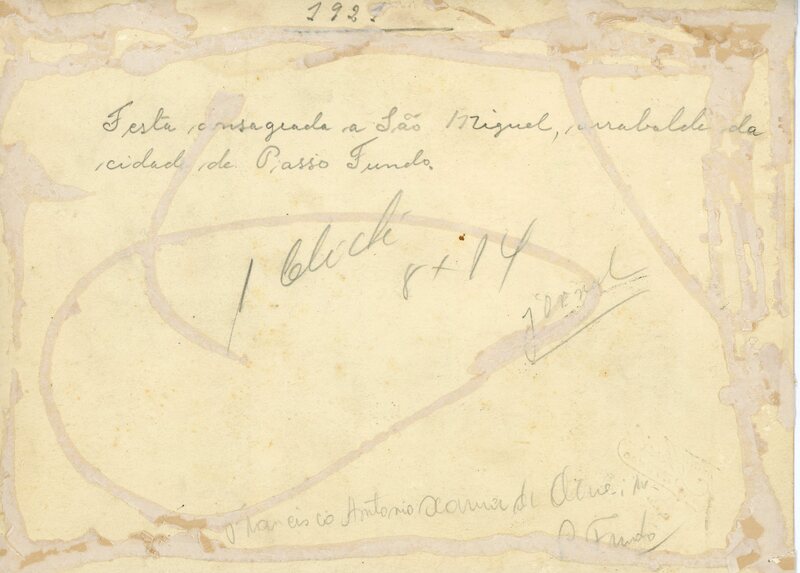 192
Festa consagrada a São Miguel, arrabalde da
cidade de Passo Fundo.
1 Clichê
8 x 14
jornal
Francisco Antonio Xavier de Oliveira
P. Fundo